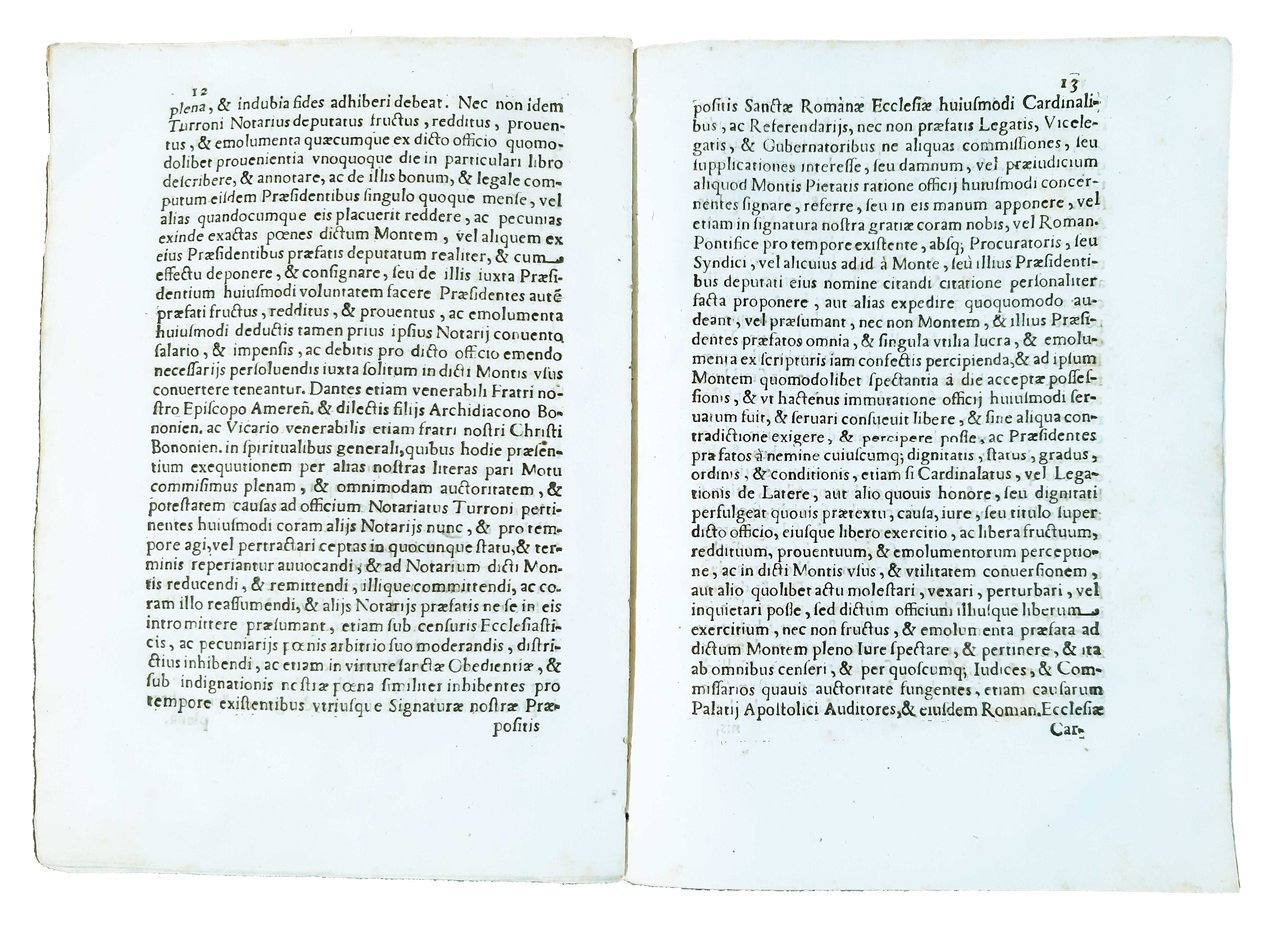 12
plena, & indubia fides adhiberi debeat. Nec non idem
Turroni Notarius deputatus fructus, redditus, prouen-
tus, & emolumenta quæcumque ex dicto officio quomo-
dolibet prouenientia vnoquoque die in particulari libro
describere, & annotare, ac de illis bonum, & legale com-
putum eisdem Præsidentibus singulo quoque mense, vel
alias quandocumque eis placuerit reddere, ac pecunias
exinde exactas pœnes dictum Montem, vel aliquem ex
eius Præsidentibus præfatis deputatum realiter, & cum
effectu deponere, & consignare, seu de illis iuxta Præsi-
dentium huiusmodi voluntatem facere Præsidentes autē
præfati fructus, redditus, & prouentus, ac emolumenta
huiusmodi deductis tamen prius ipsius Notarij conuento
salario, & impensis, ac debitis pro dicto officio emendo
necessarijs persoluendis iuxta solitum in dicti Montis vsus
conuertere teneantur. Dantes etiam venerabili Fratri no-
stro Episcopo Amereñ. & dilectis filijs Archidiacono Bo-
nonien. ac Vicario venerabilis etiam fratri nostri Christi
Bononien. in spiritualibus generali, quibus hodie præsen-
tium exequutionem per alias nostras literas pari Motu
commisimus plenam, & omnimodam auctoritatem, &
potestatem causas ad officium Notariatus Turroni perti-
nentes huiusmodi coram alijs Notarijs nunc, & pro tem-
pore agi, vel pertractari ceptas in quocunque statu, & ter-
minis reperiantur auuocandi, & ad Notarium dicti Mon-
tis reducendi, & remittendi, illique committendi, ac co-
ram illo reassumendi, & alijs Notarijs præfatis ne se in eis
intromittere præsumant, etiam sub censuris Ecclesiasti-
cis, ac pecuniarijs pœnis arbitrio suo moderandis, distri-
ctius inhibendi, ac etiam in virtute sanctæ Obedientiæ, &
sub indignationis nostræ pœna similiter inhibentes pro
tempore existentibus vtriusque Signaturæ nostræ Præ-
positis
13
positis Sanctæ Romanæ Ecclesiæ huiusmodi Cardinali-
bus, ac Referendarijs, nec non præfatis Legatis, Vicele-
gatis, & Gubernatoribus ne aliquas commissiones, seu
supplicationes interesse, seu damnum, vel præiudicium
aliquod Montis Pietatis ratione officij huiusmodi concer-
nentes signare, referre, seu in eis manum apponere, vel
etiam in signatura nostra gratiæ coram nobis, vel Roman.
Pontifice pro tempore existente, absq; Procuratoris, seu
Syndici, vel alicuius ad id à Monte, seu illius Præsidenti-
bus deputati eius nomine citandi citatione personaliter
facta proponere, aut alias expedire quoquomodo au-
deant, vel præsumant, nec non Montem, & illius Præsi-
dentes præfatos omnia, & singula vtilia lucra, & emolu-
menta ex scripturis iam confectis percipienda, & ad ipsum
Montem quomodolibet spectantia à die acceptæ posses-
sionis, & vt hactenus immutatione officij huiusmodi ser-
uatum fuit, & seruari consueuit libere, & sine aliqua con-
tradictione exigere, & percipere posse, ac Præsidentes
præfatos à nemine cuiuscumq; dignitatis, status, gradus,
ordinis, & conditionis, etiam si Cardinalatus, vel Lega-
tionis de Latere, aut alio quouis honore, seu dignitati
perfulgeat quouis prætextu, causa, iure, seu titulo super
dicto officio, eiusque libero exercitio, ac libera fructuum,
reddituum, prouentuum, & emolumentorum perceptio-
ne, ac in dicti Montis vsus, & vtilitatem conuersionem,
aut alio quolibet actu molestari, vexari, perturbari, vel
inquietari posse, sed dictum officium illiusque liberum
exercitium, nec non fructus, & emolumenta præfata ad
dictum Montem pleno Iure spectare, & pertinere, & ita
ab omnibus censeri, & per quoscumq; Iudices, & Com-
missarios quauis auctoritate fungentes, etiam causarum
Palatij Apostolici Auditores, & eiusdem Roman. Ecclesiæ
Car-